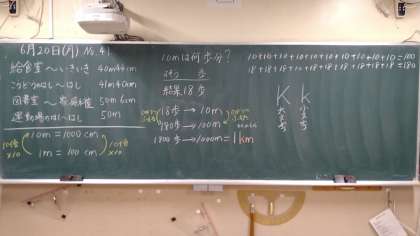 6月20日(月) No.41
給食室〜いきいき 40m44cm
こうていのはし〜はし 41m40cm
図書室〜 50m6cm
運動場のはし〜はし 50m
10m = 1000cm
1m = 100cm
10倍
×10
10倍
×10
10mは何歩分?
歩
結果18歩
18歩→10m
180歩→100m
1800歩→1000m=1km
10+10+10+10+10+10+10+10+10+10=100
18+18+18+18+18+18+18+18+18+18=180
K k
大文字
小文字